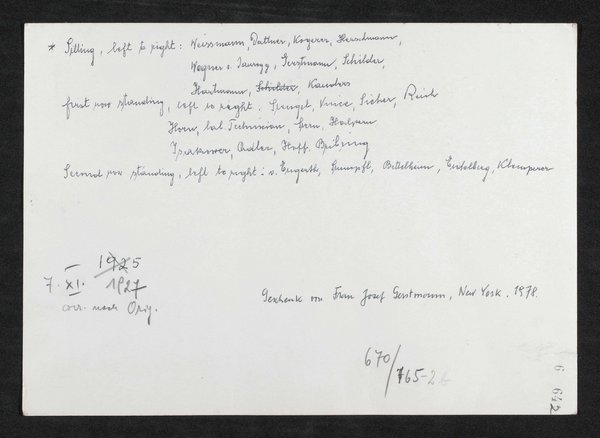 * Sitting, left to right: Weissmann, Dattner, Kogerer, Herschmann,
Wagner v. Jauregg, Gerstmann, Schilder,
Hartmann, Schilder, Kauders
first row standing, left to right: Spiegel, Sicher, Reich
Horn, lab. Technician, Stern, Halpern
Isakower, Adler, Hoff.
Second row standing, left to right: v. Engerth, Stumpfl, Bettelheim, Eidelberg, Klemperer
1925
7. XI. 1927
corr. nach Orig.
Geschenk von Frau Josef Gerstmann, New York. 1978.
670/
765-2
6 642